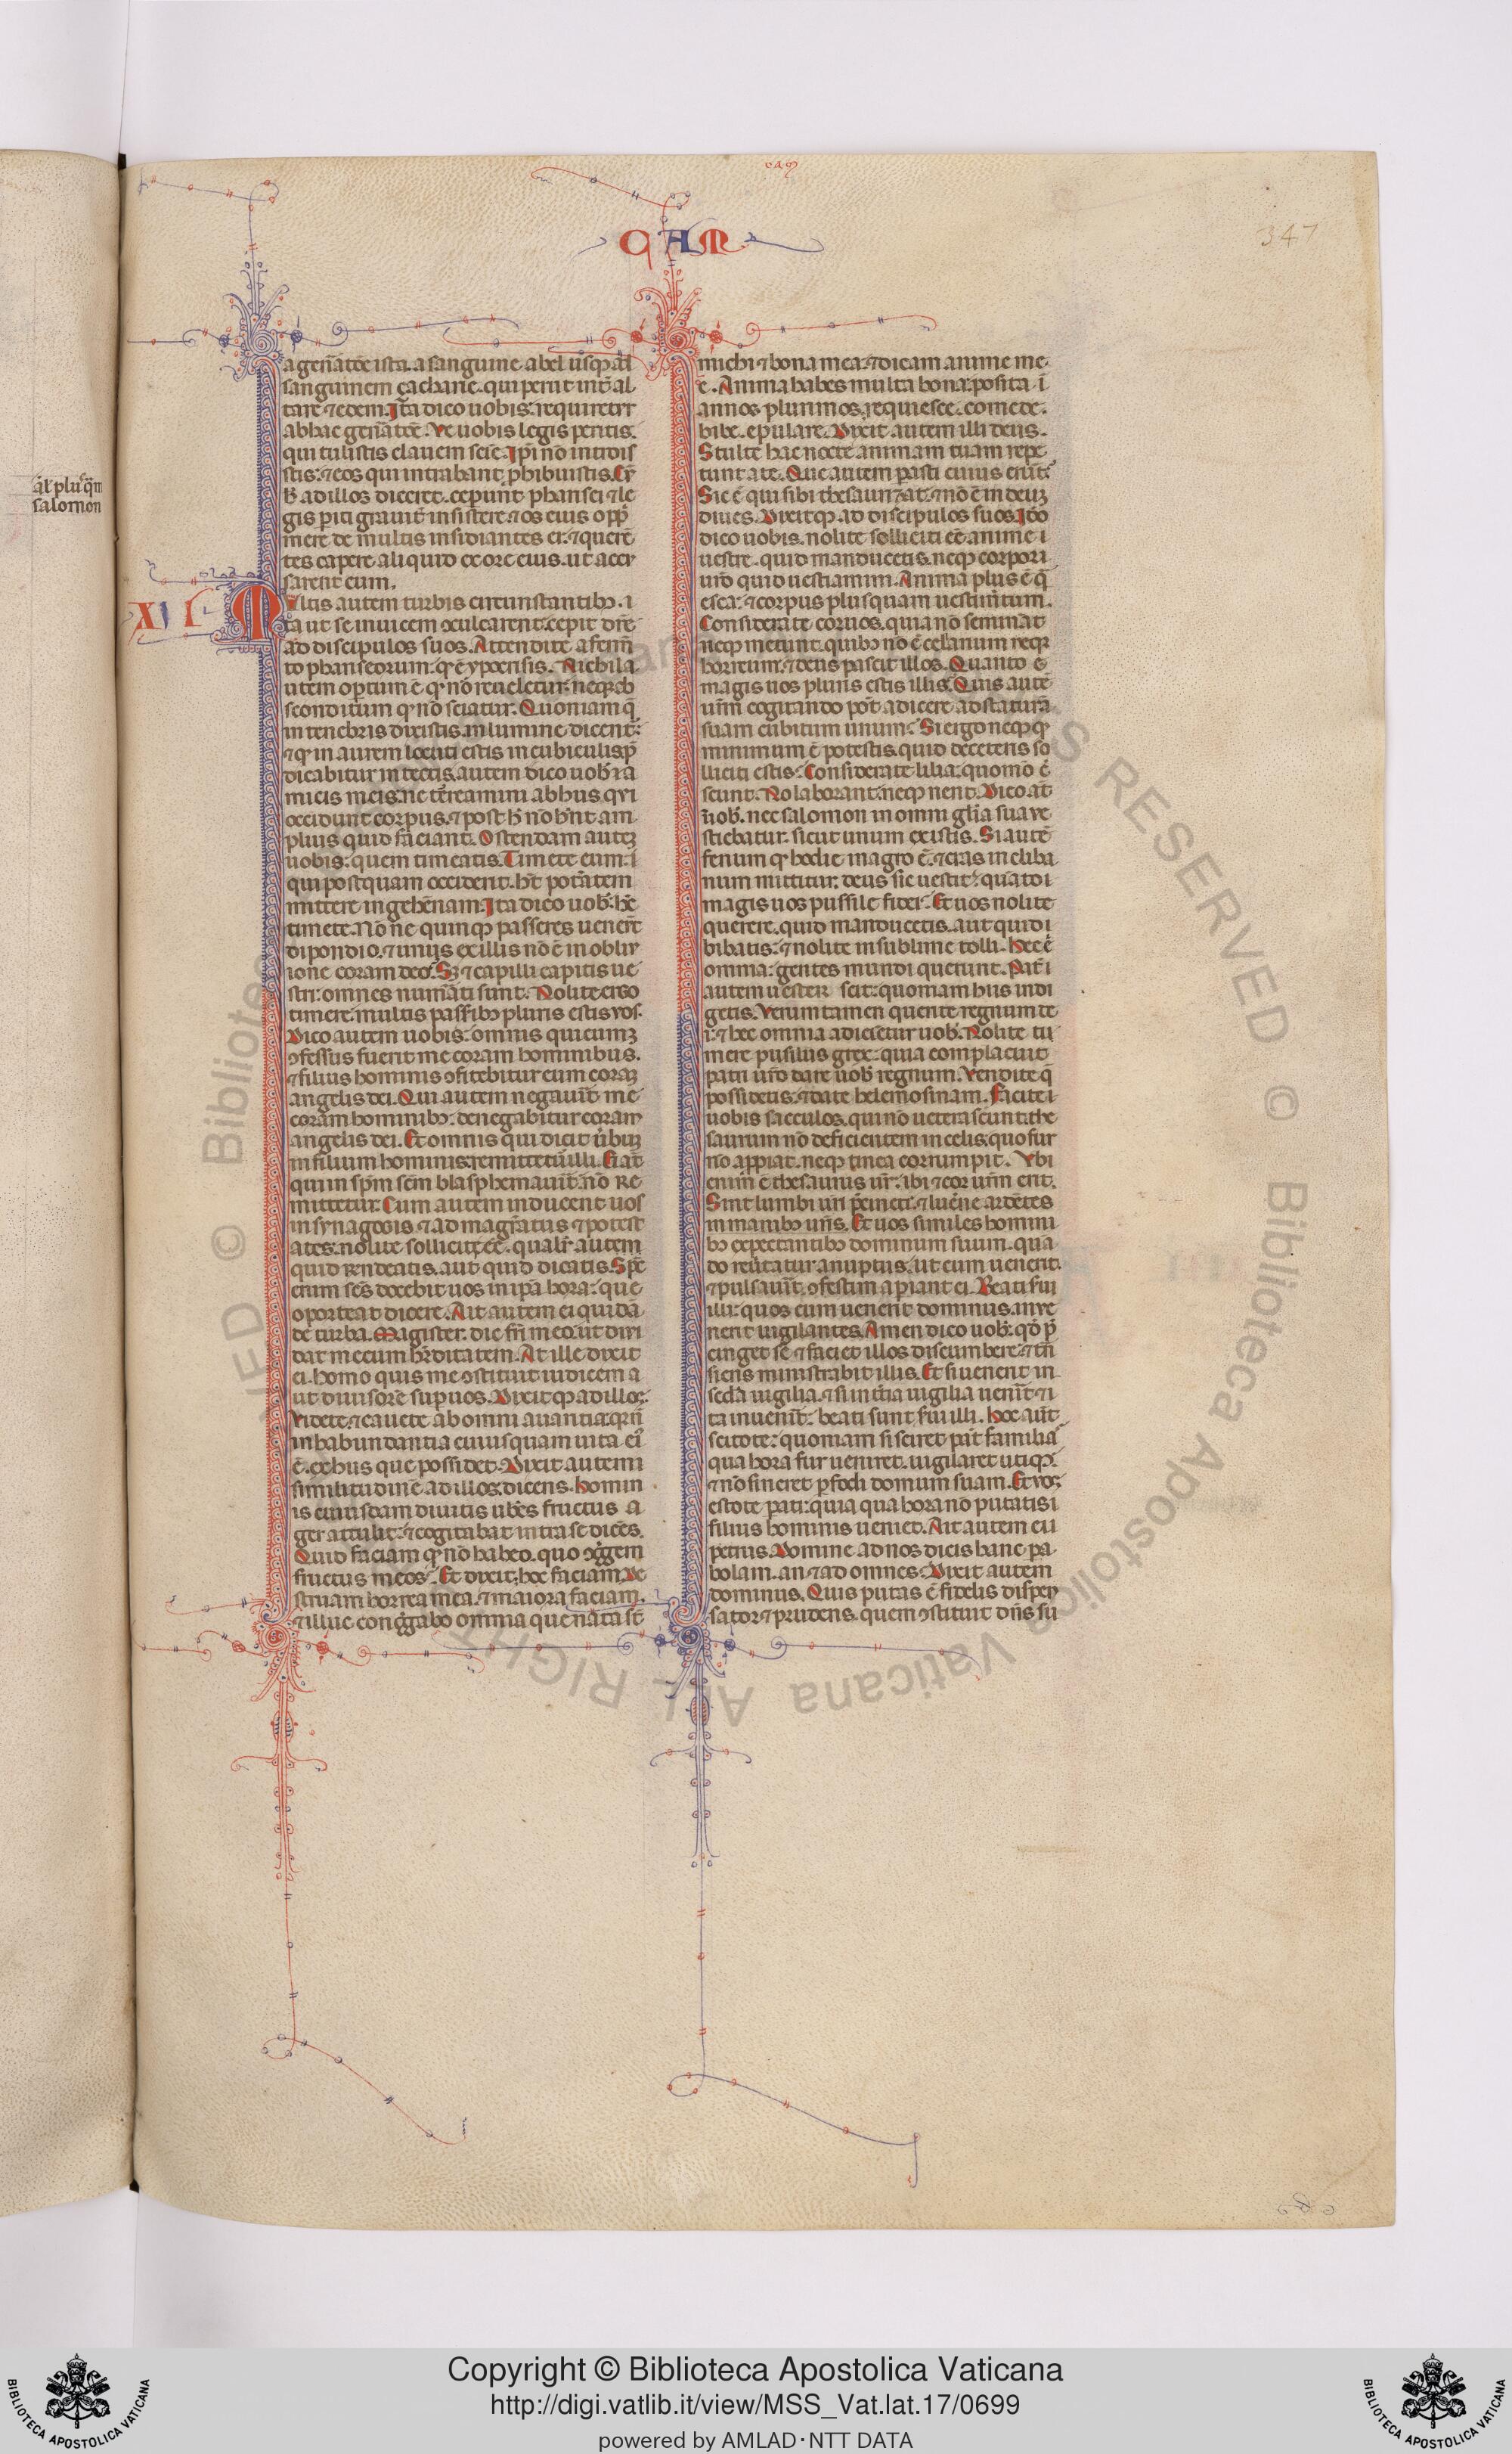 cam
CAM
347
al' plusqm
salomon
a gen̄atōe ista. a sanguine abel usq; ad
sanguinem çacharie. qui periit int̄ al
tare ⁊ edem. Ita dico uobis: requiretr̄
ab hac gen̄atōe. Ve uobis legis peritis.
qui tulistis clauem scīe. Ip̄i nō introis
stis: ⁊ eos qui intrabant. ꝓhibuistis. Cū
h̄ ad illos diceret. ceperunt pharisei ⁊ le
gis periti grauit̄ insistere ⁊ os eius opp̄
mere de multis insidiantes ei. ⁊ querē
tes capere aliquid ex ore eius. ut accu
sarent eum.
XII
Multis autem turbis circunstantib;. i
ta ut se inuicem ↄculcarent: cepit dr̄e
ad discipulos suos. Attendite a ferm̄
to phariseorum: qd̄ ē ypocrisis. Nichil a
utem optum ē qd̄ nō reueletur: neq; ab
sconditum qd̄ nō sciatur. Quoniam q̄
in tenebris dixistis. in lumine dicent̄:
⁊ qd̄ in aurem locuti estis in cubiculis p̄
dicabitur in tectis. autem dico uob̄ ı a
micis meis. ne terreamini ab hus qui
occidunt corpus. ⁊ post h̄ nō h̄nt am
plius quid faciant. Ostendam autez
uobis: quem timeatis. Timete eum: i
qui postquam occiderit. h̄t potātem
mittere in gehennam. Ita dico uob̄. hūc
timete. Nōne quinq; passeres ueneūt
dipondio. ⁊ unus ex illis nō ē in obliu
ione coram deo. Sz ⁊ capilli capitis ue
stri: omnes num̄ati sunt. Nolite ergo
timere. multis passerib; pluris estis vos.
Dico autem uobis: omnis quicumq;
ↄfessus fuerit me coram hominibus.
⁊ filius hominis ↄfitebitur eum coraz
angelis dei. Qui autem negauit̄ me
coram hominib;: denegabitur coram
angelis dei. Et omnis qui dicit ūbuz
in filium hominis. remittetur illi. Ei at̄
qui in sp̄m sc̄m blasphemauit̄. nō re
mittetur. Cum autem inducent uos
in synagogis. ⁊ ad magr̄atus ⁊ potest
ates: nolite solliciti eē. qualit̄ autem
quid rendeatis. aut quid dicatis. Sp̄c
enim sc̄s docebit uos in ip̄a hora: que
oporteat dicere. Ait autem ei quida
de turba. Magister. dic fr̄i meo: ut diui
dat mecum h̄editatem. At ille dixit
ei. homo quis me ↄstituit iudicem a
ut diuisorē sup uos. Dixitq; ad illos.
Videte ⁊ cauete ab omni auaritia: q̄ n̄
in habundantia cuiusquam uita ei'
ē. ex hiis que possidet. Dixit autem
similitudinē ad illos. dicens. Homin
is cuiusdam diuitis ub̄es fructus a
ger attulit: ⁊ cogitabat intra se dicēs.
Quid faciam qd̄ nō habeo. quo ↄg̃gem
fructus meos? Et dixit: hoc faciam. De
struam horrea mea. ⁊ maiora faciam.
⁊ illuc cong̃gabo omnia que nata st̄
michi ⁊ bona mea: ⁊ dicam anime me
e. Anima habes multa bona: posita i
annos plurimos. requiesce. comede.
bibe. epulare. Dixit autem illi deus.
Stulte hac nocte animam tuam repe
tunt a te. Que autem parasti cuius erūt?
Sic ē qui sibi thesaurizat: ⁊ nō ē in deuz
diues. Dixitq; ad discipulos suos. Ido
dico uobis. nolite solliciti eē anime i
uestre. quid manducetis. neq; corpori
uro quid uestiamini. Anima plus ē q̄
esca: ⁊ corpus plusquam uestim̄tum.
Considerate coruos. quia nō semināt
neq; metunt. quib; nō ē cellarium neq;
horreum: ⁊ deus pascit illos. Quanto e
magis uos pluris estis illis? Quis autē
ur̄m cogitando pot̄ adicere ad staturā
suam cubitum unum? Si ergo neq; qd̄
minimum ē potestis. quid de ceteris so
lliciti estis? Considerate lilia: quomō ē
scunt. Nō laborant. neq; nent. Dico at̄
uob̄. nec salomon in omni gl̄ia sua ve
stiebatur. sicut unum ex istis. Si autē
fenum qd̄ hodie in agro ē. ⁊ cras in cliba
num mittitur. deus sic uestit: quāto i
magis uos pussile fidei? Et uos nolite
querere. quid manducetis. aut quid i
bibatis: ⁊ nolite in sublime tolli. Hec ē
omnia: gentes mundi querunt. Pat̄ i
autem uester scit: quoniam hiis indi
getis. Verum tamen querite regnum de
i: ⁊ hec omnia adicietur uob̄. Nolite ti
mere pusilus grex: quia complacuit
patri uro dare uob̄ regnum. Vendite q̄
possidetis: ⁊ date helemosinam. Facite i
uobis sacculos. qui nō ueterascunt: the
saurum nō deficientem in celis: quo fur
nō appiat. neq; tinea corrumpit. Vbi
enim ē thesaurus ur̄: ibi ⁊ cor ur̄m erit.
Sint lumbi ur̄i p̄cincti: ⁊ lucerne ardētes
in manib; ur̄is. Et uos similes homini
b; expectantib; dominum suum. qua
do reū̄tatur a nuptiis: ut cum uenerit.
⁊ pulsauit̄. ↄfestim apiant ei. Beati sui
illi: quos cum uenerit dominus. inve
nerit uigilantes. Amen dico uob̄: qd̄ p̄
cinget se ⁊ faciet illos discumbere: ⁊ trā
siens ministrabit illis. Et si uenerit in
sc̄da uigilia. ⁊ si in t̄cia uigilia ueniт̄ ⁊ i
ta inuenit̄: beati sunt sui illi. Hoc aut̄
scitote: quoniam si sciret pat̄ familia
qua hora fur ueniret. uigilaret utiq;.
⁊ nō sineret ꝑfodi domum suam. Et vos
estote parati: quia qua hora nō putatis i
filius hominis ueniet. Ait autem eu
petrus. Domine ad nos dicis hanc pa
bolam. an ⁊ ad omnes? Dixit autem
dominus. Quis putas ē fidelis dispen
sator ⁊ prudens. quem ↄstituit dn̄s su
© Biblioteca Apostolica Vaticana ALL RIGHTS RESERVED
Copyright © Biblioteca Apostolica Vaticana
http://digi.vatlib.it/view/MSS_Vat.lat.17/0699
powered by AMLAD·NTT DATA
BIBLIOTECA APOSTOLICA VATICANA
BIBLIOTECA APOSTOLICA VATICANA